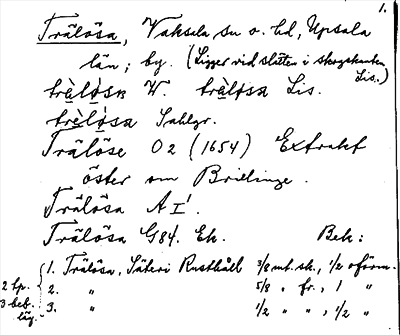 1.
Trälösa, Vaksala sn o. hd, Upsala
län; by. (Ligger vid slätten i skogskanten
Lis.)
trälösa W. trälosa Lis.
trälösa Sahlgr.
Trälöse O2 (1654) Extrakt
öster om Brillinge.
Trälösa A I¹.
Trälösa G84. Ek. Bek:
1. Trälösa, Säteri Rusthåll 3/8 mt. sk., 1/2 oförm.
2 bp. 2. " 5/8 " fr., 1 "
3 beb. 3. " 1/2 " " , 1/2 "
läg.